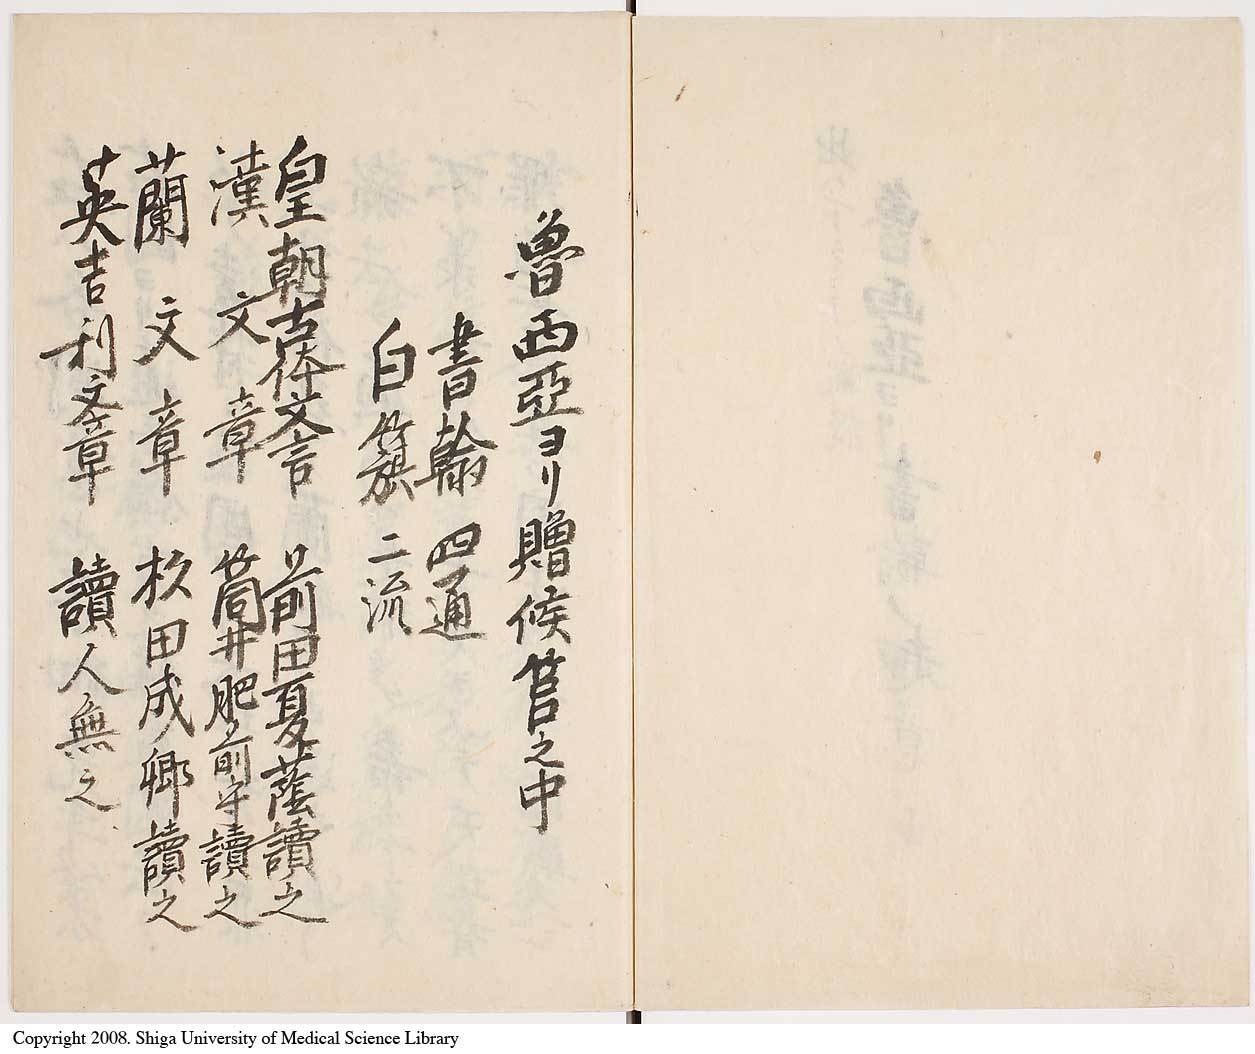 魯西亜ヨリ贈候筥之中
書翰四通
白籏二流
皇朝古体文言 前田夏蔭讀之
漢文章 筒井肥前守讀之
蘭文章 杉田成卿讀之
英吉利文章 讀人無之
Copyright 2008. Shiga University of Medical Science Library